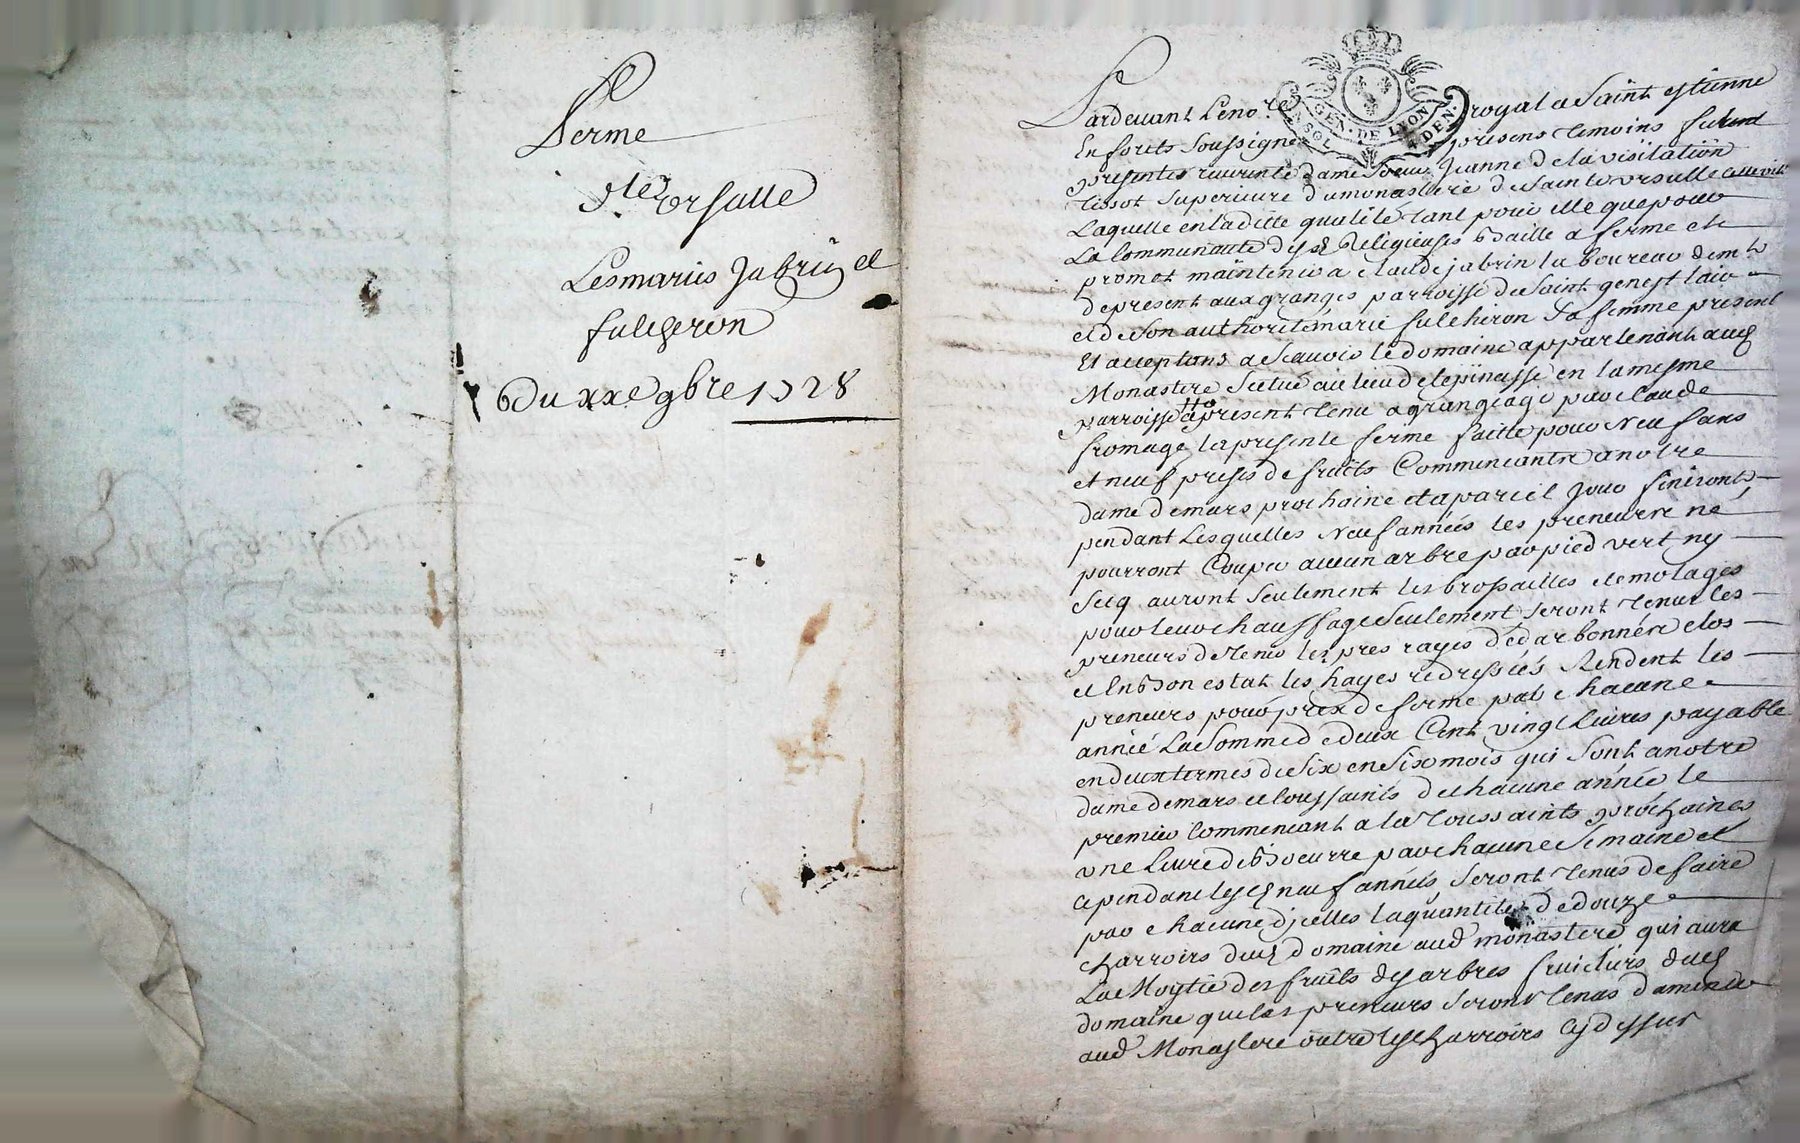 ferme
Ste Vrsulle
Les mariés Jabrin et
fulcheron
Du xxe 9bre 1728
GEN · DE LYON
Pardevant Le nore royal a Saint estienne
En forets Soussigné presens temoins furent
presentes reverente dame Soeur Jeanne de la visitation
tissot Superieure du monastere de Sainte vrsulle cette ville
Laquelle en la ditte qualité tant pour elle que pour
La Communauté desd Religieuses Baille a ferme et
promet maintenir a claude jabrin laboureur demt
de present aux granges parroisse de Saint genest lair
et de Son authorité marie fulcheron Sa femme present
Et acceptans a Scauoir le domaine appartenant aud
Monastere Scitué au lieu de lepinasse en la mesme
parroisse a present tenu a grangeage par claude
fromage la presente ferme faitte pour Neuf ans
et neuf prises de fruits Commencants a notre
dame de mars prochaine et a pareil Jour finiront
pendant Lesquelles Neuf années les preneurs ne
pourront Couper aucun arbre par pied vert ny
Secq auront Seulement les brossailles et emolages
pour leur chauffage Seulement Seront tenus les
preneurs de tenir les pres rayés dédarbonnéré clos
et En Bon estat les hayes redressées Rendent les
preneurs pour prix de ferme par chacune
année La Somme de deux Cent vingt Liures payable
en deux termes de Six en Six mois qui Sont a notre
dame de mars et toussaints de chacune année le
premier Commencant a la toussaints prochaines
vne Liure de Boeurre par chacune Semaine et
cependant lesd neuf années Seront tenus de faire
par chacune djcelles la quantité de douze
charroirs dud domaine aud monastere qui aura
La Moytié des fruits des arbres fruitiers dud
domaine que les preneurs Seront tenus damener
aud Monastere outre les charroirs cy dessus